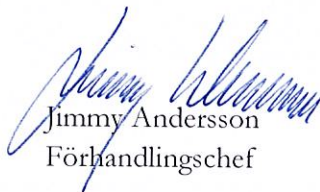 Jimmy Andersson
Förhandlingschef